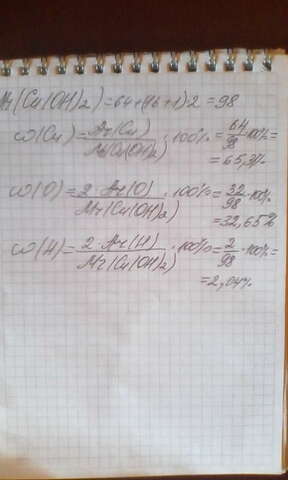 Mr(Cu(OH)2)=64+(16+1)2=98
ω(Cu)=Ar(Cu)/Mr(Cu(OH)2)·100%=64/98·100%=
=65,3%
ω(O)=2·Ar(O)/Mr(Cu(OH)2)·100%=32/98·100%
=32,65%
ω(H)=2·Ar(H)/Mr(Cu(OH)2)·100%=2/98·100%=
=2,04%